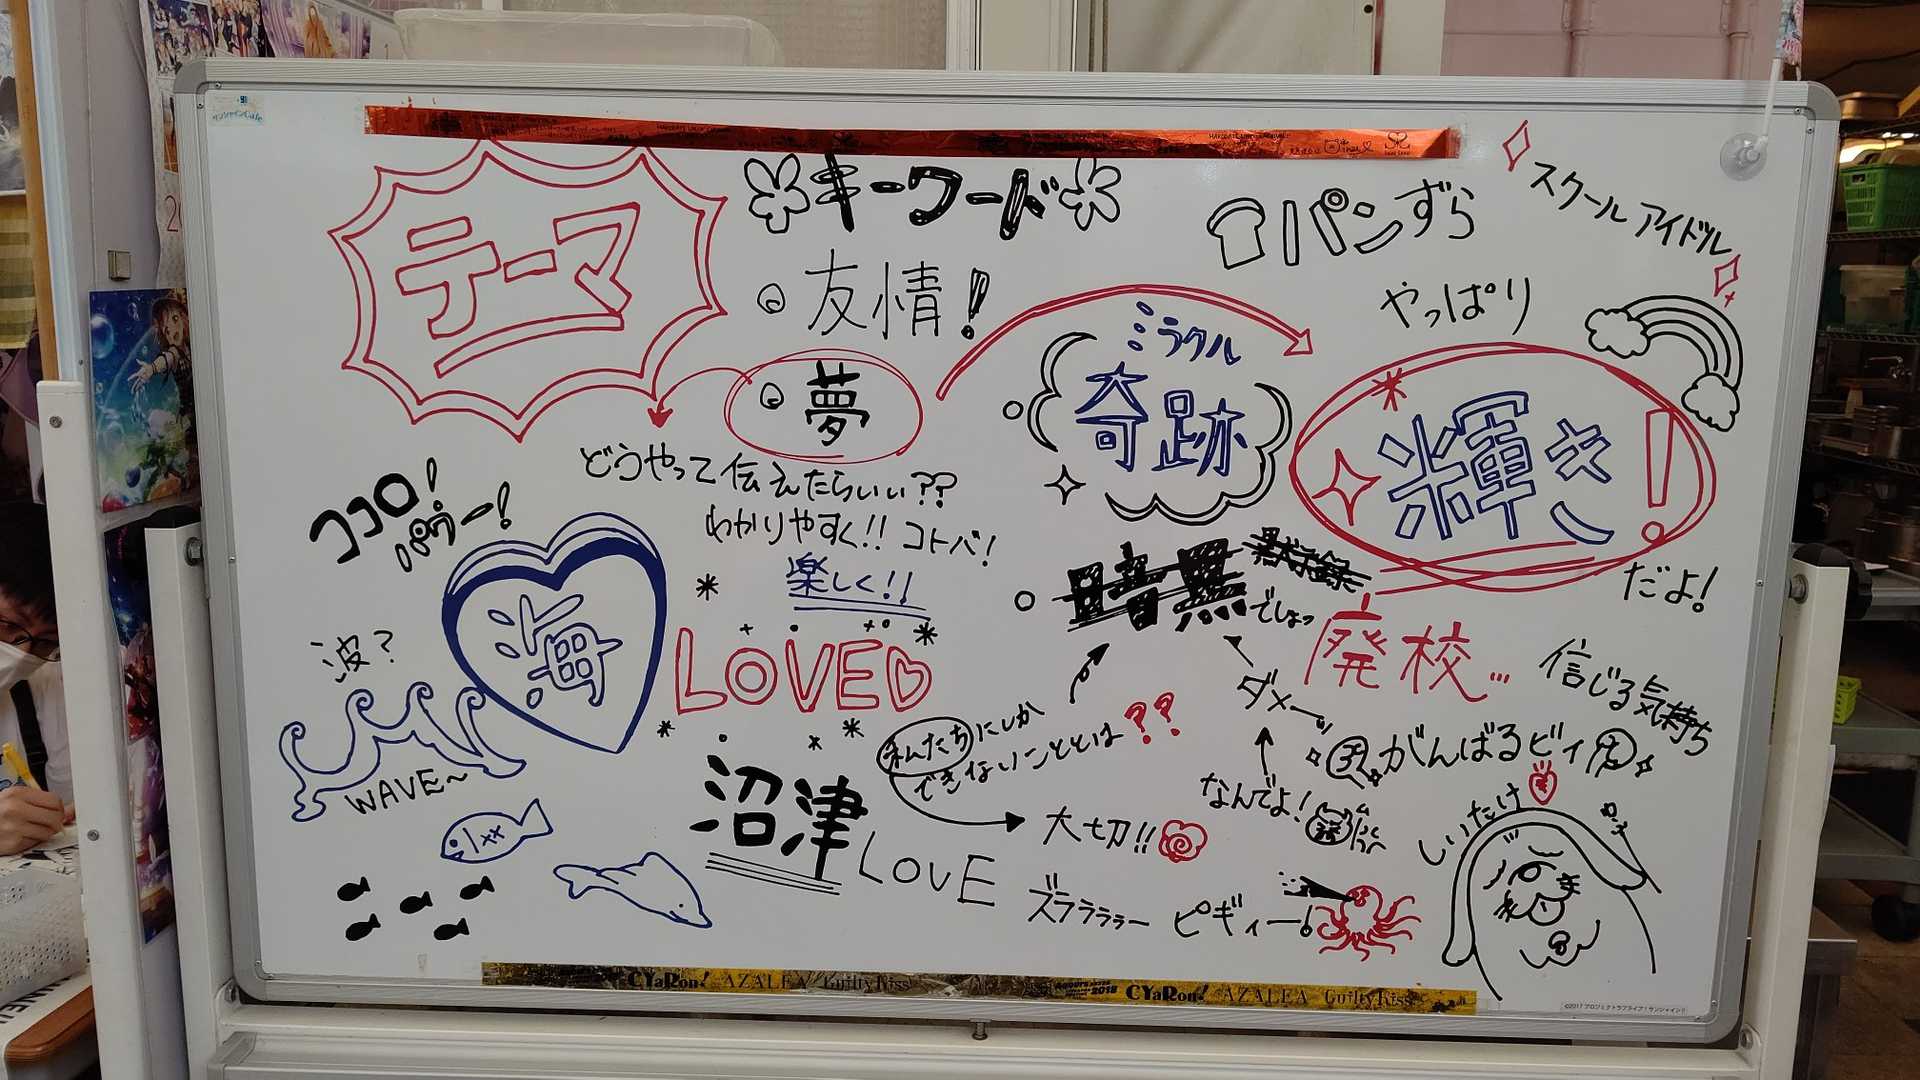 テーマ
キーワード
友情!
夢
パンずら
スクールアイドル
やっぱり
ミラクル
奇跡
輝き!
だよ!
どうやって伝えたらいい??
わかりやすく!! コトバ!
楽しく!!
ココロ!
パワー!
海
波?
WAVE~
LOVE
でしょっ
廃校...
信じる気持ち
ダメーッ
私たちにしか
できないこととは??
がんばるビィ
なんでよ!
大切!!
しいたけ
沼津
LOVE
ズララララー ピギィー!
CYaRon! AZALEA Guilty Kiss
CYaRon! AZALEA Guilty Kiss
©2017 プロジェクトラブライブ!サンシャイン!!